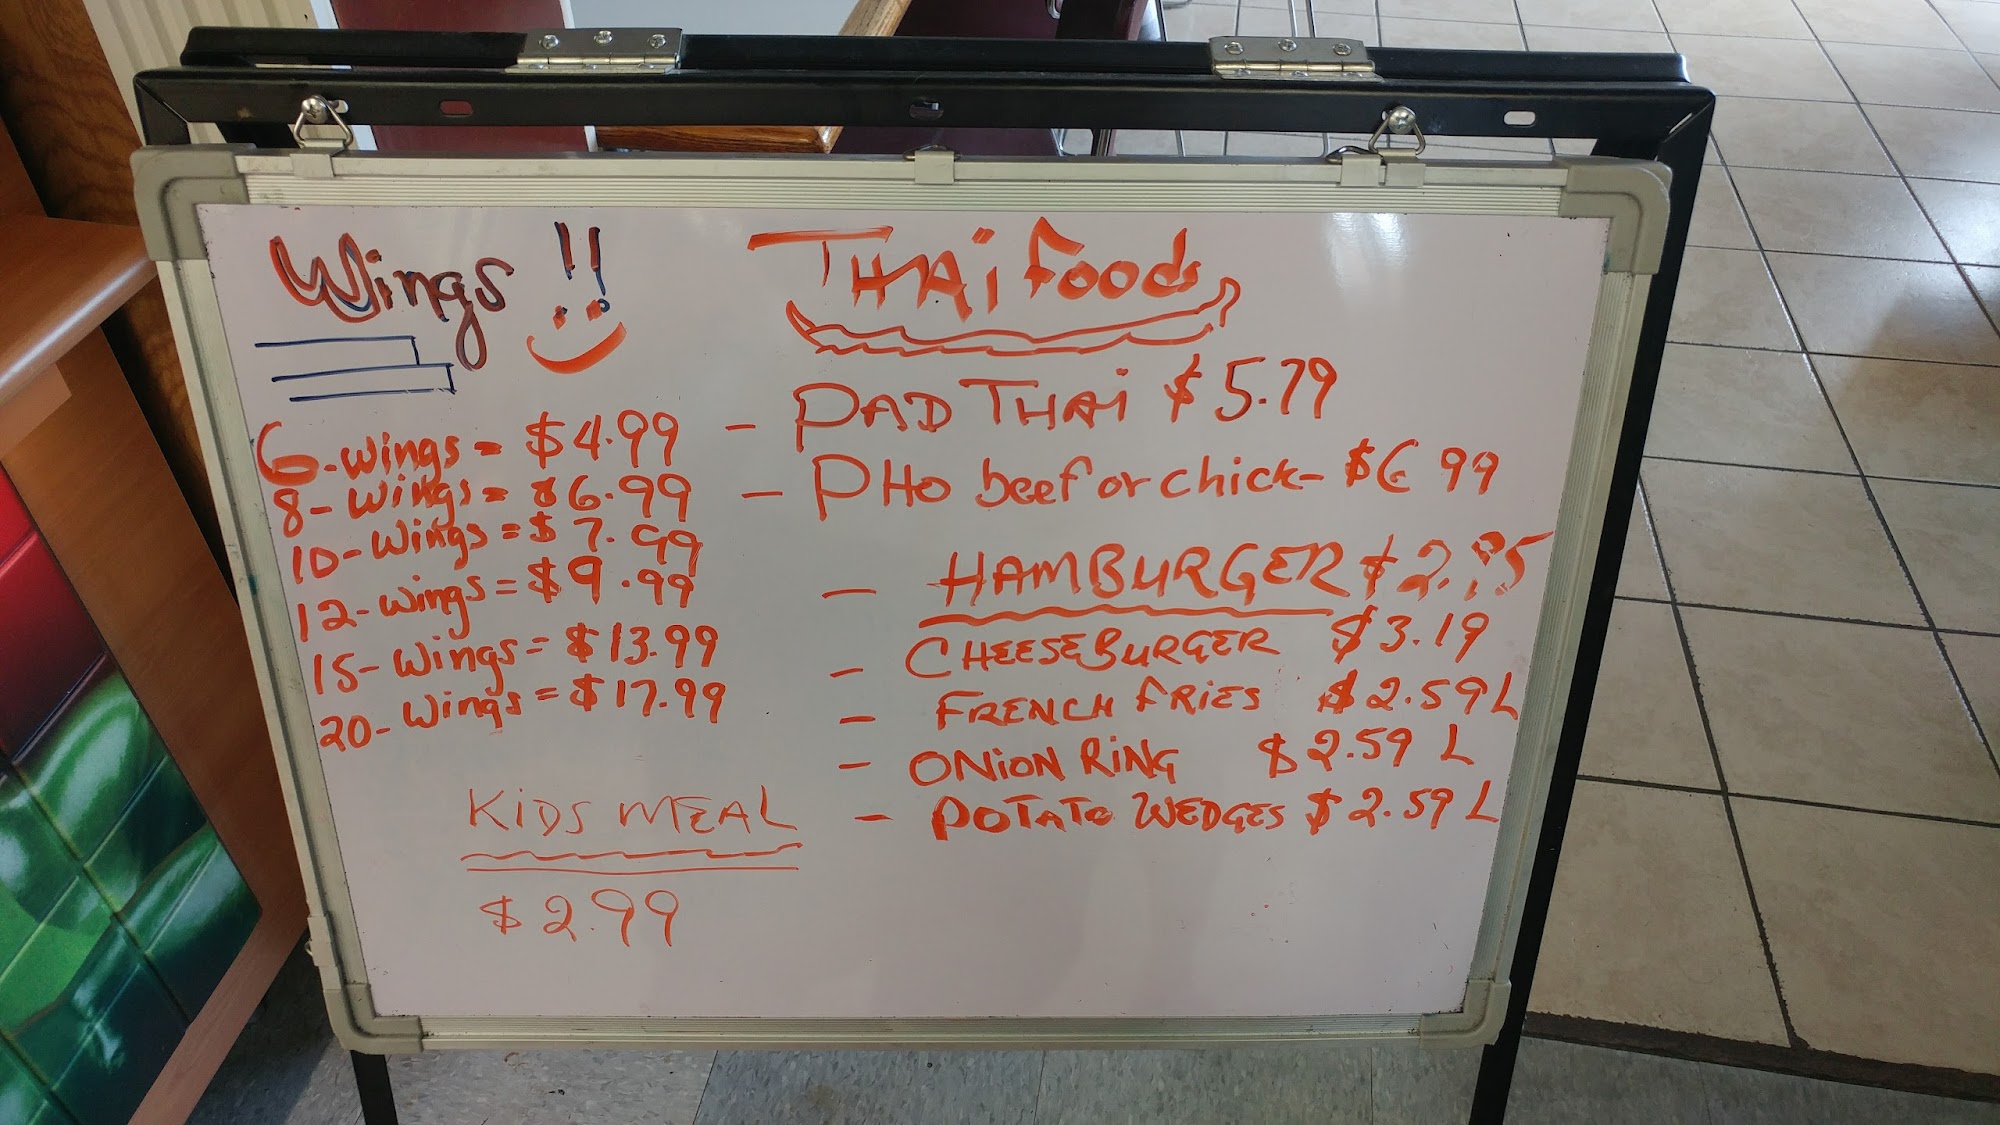 Wings !!
6-wings = $4.99
8-wings = $6.99
10-wings = $7.99
12-wings = $9.99
15-wings = $13.99
20-wings = $17.99
KIDS MEAL
$2.99
THAi Foods
- PAD THAi $5.79
- PHO beef or chick- $6 99
- HAMBURGER
- CHEESEBURGER $3.19
- FRENCH FRiES $2.59 L
- ONiON RiNG $2.59 L
- POTATO WEDGES $2.59 L